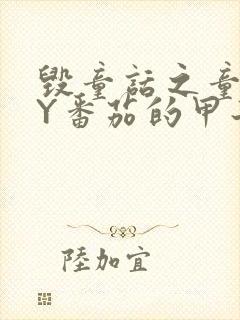 毁童话之童
Y番茄的甲
陸加宜